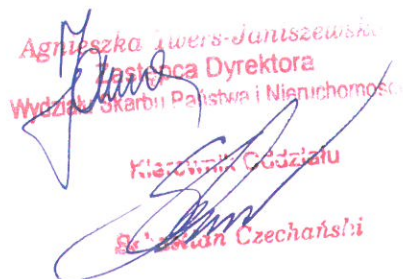 Agnieszka Iwers-Janiszewska
Zastępca Dyrektora
Wydziału Skarbu Państwa i Nieruchomości
Kierownik Oddziału
Sebastian Czechański